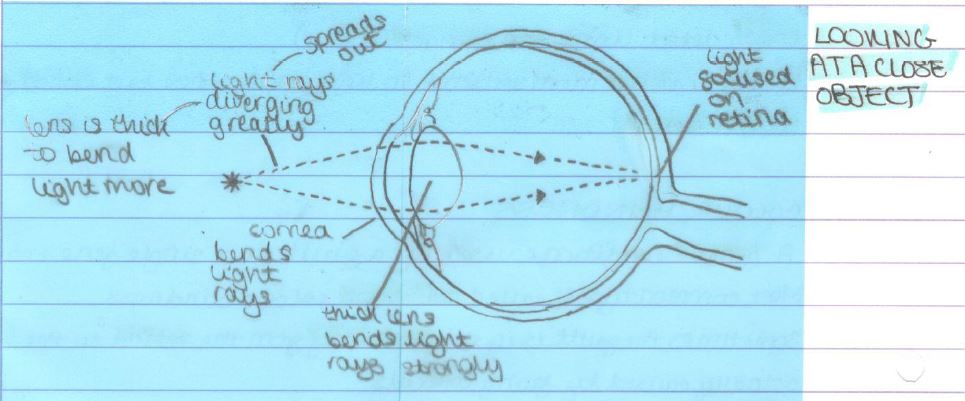 LOOKING
AT A CLOSE
OBJECT
spreads
out
light rays
diverging
greatly
lens is thick
to bend
light more
light
focused
on
retina
cornea
bends
light
rays
thick lens
bends light
rays strongly